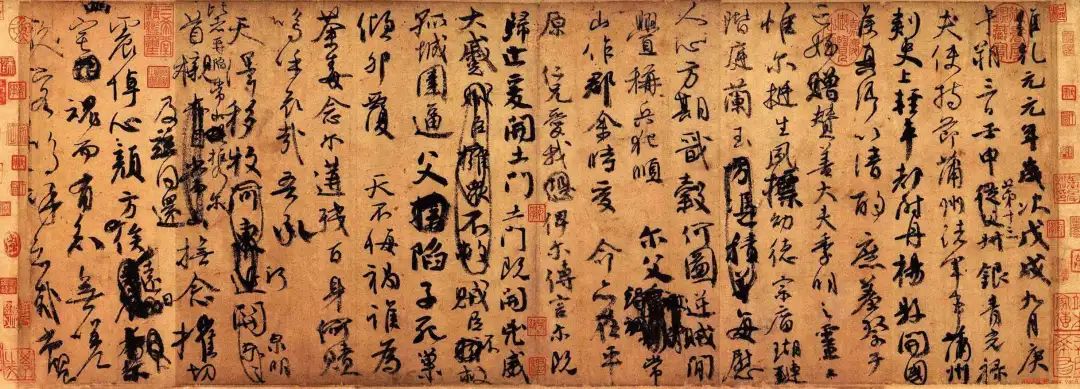 維乾元元年歲次戊戌九月庚
午朔三日壬申第十三從父叔銀青光祿
夫使持節蒲州諸軍事蒲州
刺史上輕車都尉丹楊縣開國
侯真卿以清酌庶羞祭于
亡姪贈贊善大夫季明之靈曰
惟爾挺生夙標幼德宗廟瑚璉
階庭蘭玉方憑積善每慰
人心方期戩穀何圖逆賊閒
釁稱兵犯順爾父竭誠常
山作郡余時受命亦在平
原仁兄愛我恐俾爾傳言爾既
歸止爰開土門土門既開兇威
大蹙賊臣擁眾不救賊臣不救
孤城圍逼父擒陷子死巢
傾卵覆天不悔禍誰為
荼毒念爾遘殘百身何贖
嗚呼哀哉吾承
天澤移牧河東近河關泉明
比者再陷常山攜爾
首櫬及茲同還亦自常山撫念摧切
震悼心顏方俟遠日
宅魂而有知無嗟
久客嗚呼哀哉尚饗